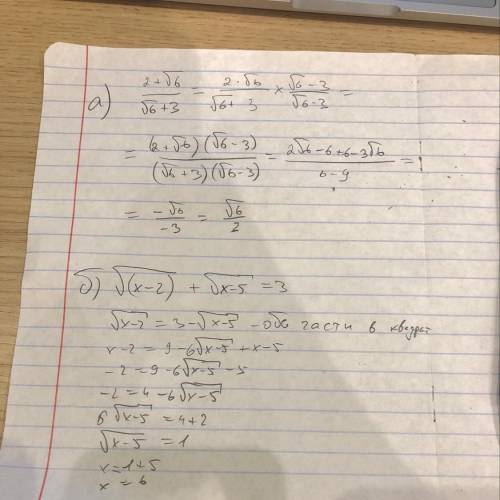 а) (2+√6)/(√6+3) = (2·√6)/(√6+3) × (√6-3)/(√6-3) =
= ((2+√6)(√6-3))/((√6+3)(√6-3)) = (2√6-6+6-3√6)/(6-9) =
= (-√6)/(-3) = √6/2
б) √(x-2) + √x-5 = 3
√x-2 = 3-√x-5 - обе части в квадрат
x-2 = 9-6√x-5 + x-5
-2 = 9-6√x-5 -5
-2 = 4-6√x-5
6√x-5 = 4+2
√x-5 = 1
x = 1+5
x = 6